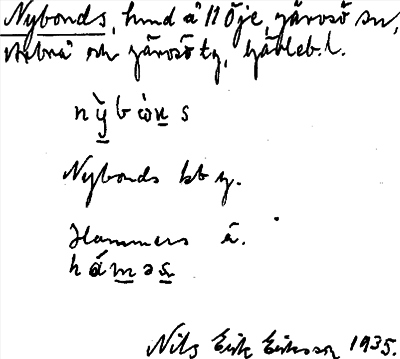 Nybonds, hmd å 11 Öje, Järvsö sn,
och Järvsö tg, Gävleb. l.
nỳbὼns
Nybonds bb y.
Hammers å.
hámǝs
Nils Erik Eriksson 1935.